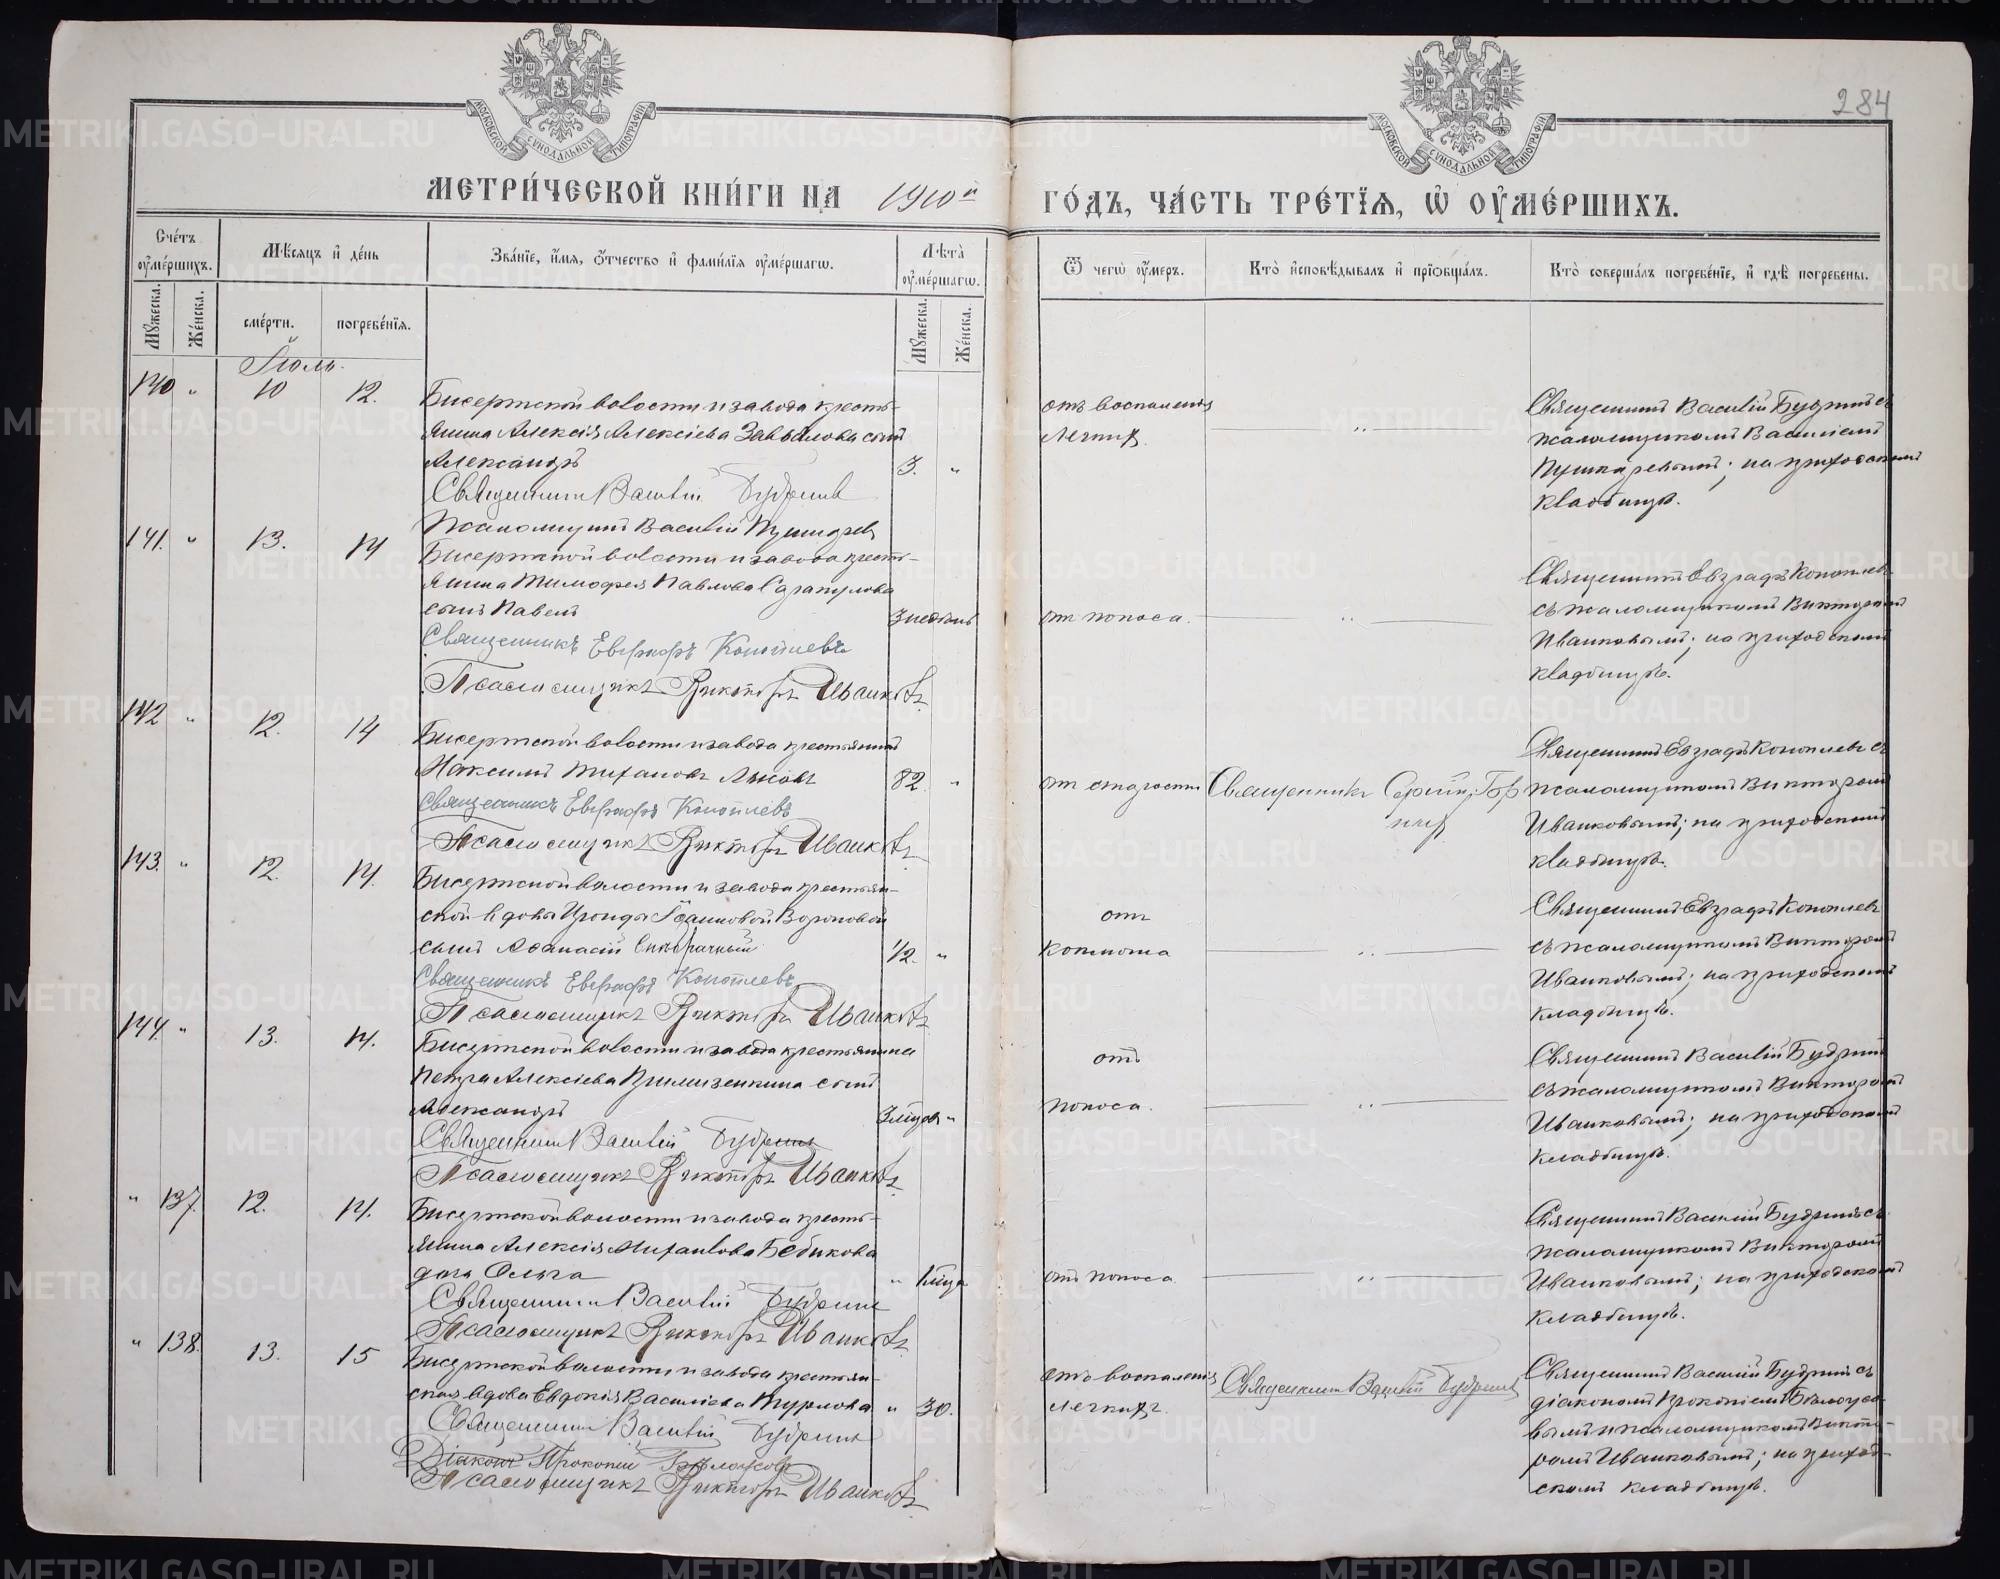 284
МОСКОВСКОЙ СѴНОДАЛЬНОЙ ТИПОГРАФІИ
МОСКОВСКОЙ СѴНОДАЛЬНОЙ ТИПОГРАФІИ
МЕТРИ́ЧЕСКОЙ КНИ́ГИ НА 1910й ГО́ДЪ, ЧА́СТЬ ТРЕ́ТІѦ, Ѡ҆ ОУ҆МЕ́РШИХЪ.
Сче́тъ оу҆ме́ршихъ.
Мѣ́сяцъ и҆ де́нь
Зва́нїе, и҆́мя, ѻ҆́тчество и҆ фами́лїя оу҆ме́ршагѡ.
Лѣта̀ оу҆ме́ршагѡ.
Ѿ чегѡ̀ оу҆́меръ.
Кто̀ и҆сповѣ́дывалъ и҆ прїѻбща́лъ.
Кто̀ соверша́лъ погребе́нїе, и҆ гдѣ̀ погребены̀.
Мꙋ́жеска. Же́нска. сме́рти. погребе́нїя. Мꙋ́жеска. Же́нска.
Іюль.
140 " 10 12.
Бисертской волости и завода кресть-
янина Алексія Алексіева Завьялова сынъ
Александръ 3. "
Священникъ Василій Будринъ
Псаломщикъ Василій Пушкаревъ
отъ воспаленія
легкихъ.
Священникъ Василій Будринъ съ
псаломщикомъ Василіемъ
Пушкаревымъ; на приходскомъ
кладбищѣ.
141. " 13. 14
Бисертской волости и завода кресть-
янина Тимофея Павлова Сарапулова
сынъ Павелъ 3 недѣль
Священникъ Евграфъ Коноплевъ
Псаломщикъ Викторъ Иванковъ.
отъ поноса.
Священникъ Евграфъ Коноплевъ
съ псаломщикомъ Викторомъ
Иванковымъ; на приходскомъ
кладбищѣ.
142 " 12. 14
Бисертской волости и завода крестьянинъ
Максимъ Лыковъ 82. "
Священникъ Евграфъ Коноплевъ
Псаломщикъ Викторъ Иванковъ.
отъ старости
Священникъ Сергій
Священникъ Евграфъ Коноплевъ съ
псаломщикомъ Викторомъ
Иванковымъ; на приходскомъ
кладбищѣ.
143. " 12. 14.
Бисертской волости и завода крестьян-
ской вдовы Іоанновой Вороновой
сынъ Аѳанасій 1/2. "
Священникъ Евграфъ Коноплевъ
Псаломщикъ Викторъ Иванковъ
отъ
коклюша
Священникъ Евграфъ Коноплевъ
съ псаломщикомъ Викторомъ
Иванковымъ; на приходскомъ
кладбищѣ.
144. " 13. 14.
Бисертской волости и завода крестьянина
Петра Алексіева сынъ
Александръ 3 мѣсяц. "
Священникъ Василій Будринъ
Псаломщикъ Викторъ Иванковъ.
отъ
поноса.
Священникъ Василій Будринъ
съ псаломщикомъ Викторомъ
Иванковымъ; на приходскомъ
кладбищѣ.
" 137. 12. 14.
Бисертской волости и завода кресть-
янина Алексія Михаилова Бебикова
дочь Ольга " 1 мѣсяца
Священникъ Василій Будринъ
Псаломщикъ Викторъ Иванковъ.
отъ поноса
Священникъ Василій Будринъ съ
псаломщикомъ Викторомъ
Иванковымъ; на приходскомъ
кладбищѣ.
" 138. 13. 15
Бисертской волости и завода крестьян-
ская вдова Евдокія Васильева Турлова " 30.
Священникъ Василій Будринъ
Діаконъ Прокопій Бѣлоусовъ
Псаломщикъ Викторъ Иванковъ.
отъ воспаленія
легкихъ.
Священникъ Василій Будринъ
Священникъ Василій Будринъ съ
діакономъ Прокопіемъ Бѣлоусо-
вымъ и псаломщикомъ Викто-
ромъ Иванковымъ; на приход-
скомъ кладбищѣ.
METRIKI.GASO-URAL.RU